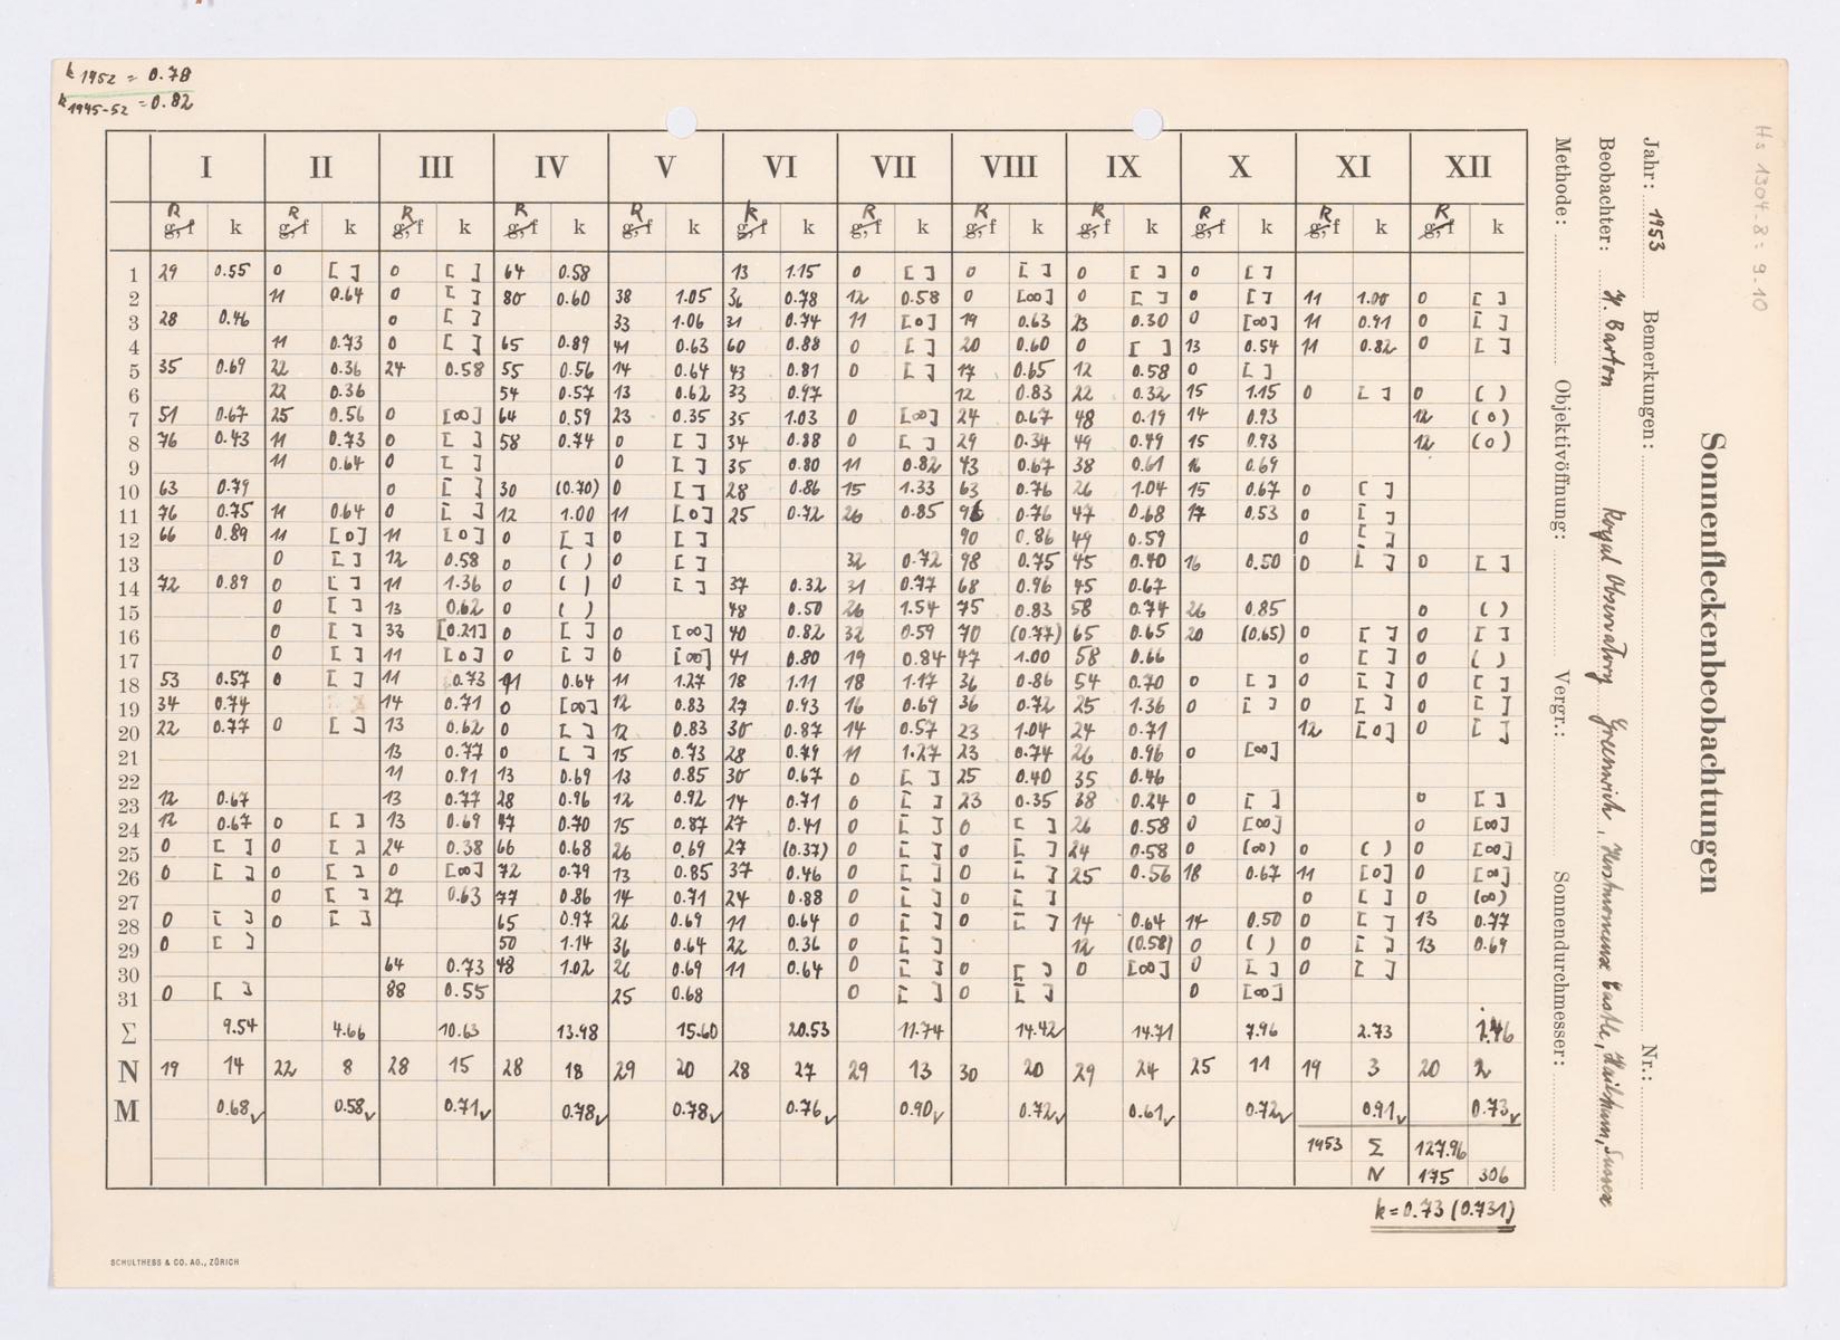 k 1952 = 0.78
k 1945-52 = 0.82
Hs 1304.8 : 9.10
Sonnenfleckenbeobachtungen
Jahr: 1953 Bemerkungen: Nr.:
Beobachter: H. Barton Royal Observatory Greenwich, Herstmonceux Castle, Hailsham, Sussex
Methode: Objektivöffnung: Vergr.: Sonnendurchmesser:
I II III IV V VI VII VIII IX X XI XII
R g, f k R g, f k R g, f k R g, f k R g, f k R g, f k R g, f k R g, f k R g, f k R g, f k R g, f k R g, f k
1 29 0.55 0 [ ] 0 [ ] 64 0.58 13 1.15 0 [ ] 0 [ ] 0 [ ] 0 [ ]
2 11 0.64 0 [ ] 80 0.60 38 1.05 36 0.78 12 0.58 0 [∞] 0 [ ] 0 [ ] 11 1.00 0 [ ]
3 28 0.46 0 [ ] 33 1.06 31 0.74 11 [0] 19 0.63 23 0.30 0 [∞] 11 0.91 0 [ ]
4 11 0.73 0 [ ] 65 0.89 41 0.63 60 0.88 0 [ ] 20 0.60 0 [ ] 13 0.54 11 0.82 0 [ ]
5 35 0.69 22 0.36 24 0.58 55 0.56 14 0.64 43 0.81 0 [ ] 17 0.65 12 0.58 0 [ ]
6 22 0.36 54 0.57 13 0.62 33 0.97 12 0.83 22 0.32 15 1.15 0 [ ] 0 ( )
7 51 0.67 25 0.56 0 [∞] 64 0.59 23 0.35 35 1.03 0 [∞] 24 0.67 48 0.19 14 0.93 12 (0)
8 76 0.43 11 0.73 0 [ ] 58 0.74 0 [ ] 34 0.88 0 [ ] 29 0.34 49 0.49 15 0.93 12 (0)
9 11 0.64 0 [ ] 0 [ ] 35 0.80 11 0.82 43 0.67 38 0.61 16 0.69
10 63 0.79 0 [ ] 30 (0.70) 0 [ ] 28 0.86 15 1.33 63 0.76 26 1.04 15 0.67 0 [ ]
11 76 0.75 11 0.64 0 [ ] 12 1.00 11 [0] 25 0.72 26 0.85 96 0.76 47 0.68 17 0.53 0 [ ]
12 66 0.89 11 [0] 11 [0] 0 [ ] 0 [ ] 90 0.86 49 0.59 0 [ ]
13 0 [ ] 12 0.58 0 ( ) 0 [ ] 32 0.72 98 0.75 45 0.40 16 0.50 0 [ ] 0 [ ]
14 72 0.89 0 [ ] 11 1.36 0 ( ) 0 [ ] 37 0.32 31 0.77 68 0.96 45 0.67
15 0 [ ] 13 0.62 0 ( ) 48 0.50 26 1.54 75 0.83 58 0.74 26 0.85 0 ( )
16 0 [ ] 33 [0.21] 0 [ ] 0 [∞] 40 0.82 32 0.59 70 (0.77) 65 0.65 20 (0.65) 0 [ ] 0 [ ]
17 0 [ ] 11 [0] 0 [ ] 0 [∞] 41 0.80 19 0.84 47 1.00 58 0.66 0 [ ] 0 ( )
18 53 0.57 0 [ ] 11 0.73 11 0.64 11 1.27 18 1.11 18 1.17 36 0.86 54 0.70 0 [ ] 0 [ ] 0 [ ]
19 34 0.74 14 0.71 0 [∞] 12 0.83 27 0.93 16 0.69 36 0.72 25 1.36 0 [ ] 0 [ ] 0 [ ]
20 22 0.77 0 [ ] 13 0.62 0 [ ] 12 0.83 30 0.87 14 0.57 23 1.04 24 0.71 12 [0] 0 [ ]
21 13 0.77 0 [ ] 15 0.73 28 0.79 11 1.27 23 0.74 26 0.96 0 [∞]
22 11 0.91 13 0.69 13 0.85 30 0.67 0 [ ] 25 0.40 35 0.46
23 12 0.67 13 0.77 28 0.96 12 0.92 14 0.71 0 [ ] 23 0.35 38 0.24 0 [ ] 0 [ ]
24 12 0.67 0 [ ] 13 0.69 47 0.70 15 0.87 27 0.41 0 [ ] 0 [ ] 26 0.58 0 [∞] 0 [∞]
25 0 [ ] 0 [ ] 24 0.38 66 0.68 26 0.69 27 (0.37) 0 [ ] 0 [ ] 24 0.58 0 (∞) 0 ( ) 0 [∞]
26 0 [ ] 0 [ ] 0 [∞] 72 0.79 13 0.85 37 0.46 0 [ ] 0 [ ] 25 0.56 18 0.67 11 [0] 0 [∞]
27 0 [ ] 27 0.63 77 0.86 14 0.71 24 0.88 0 [ ] 0 [ ] 0 [ ] 0 (∞)
28 0 [ ] 0 [ ] 65 0.97 26 0.69 11 0.64 0 [ ] 0 [ ] 14 0.64 14 0.50 0 [ ] 13 0.77
29 0 [ ] 50 1.14 36 0.64 22 0.36 0 [ ] 12 (0.58) 0 ( ) 0 [ ] 13 0.69
30 64 0.73 48 1.02 26 0.69 11 0.64 0 [ ] 0 [ ] 0 [∞] 0 [ ] 0 [ ]
31 0 [ ] 88 0.55 25 0.68 0 [ ] 0 [ ] 0 [∞]
Σ 9.54 4.66 10.63 13.98 15.60 20.53 11.74 14.42 14.71 7.96 2.73 1.46
N 19 14 22 8 28 15 28 18 29 20 28 27 29 13 30 20 29 24 25 11 19 3 20 2
M 0.68 0.58 0.71 0.78 0.78 0.76 0.90 0.72 0.61 0.72 0.91 0.73
1953 Σ 127.96
N 175 306
k = 0.73 (0.731)
SCHULTHESS & CO. AG., ZÜRICH